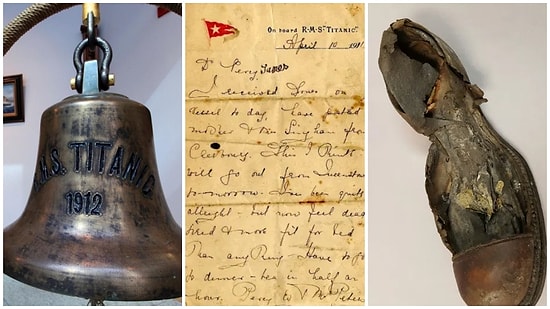 R.M.S. TITANIC
1912
On board R.M.S. "TITANIC".
April 10 191
Dr Percy James
I received yours on
vessel to day, have posted
mother & Miss from
This I
will go out from Queenstown
to-morrow. been quite
allright - but now feel dead
tired & more fit for bed
than any thing - Have to go
to dinner - tea in half an
hour. Percy